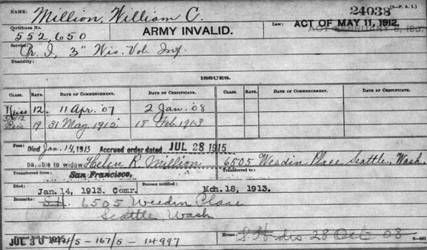 Name: Million, William C. 24038
ARMY INVALID. Law: ACT OF MAY 11, 1912.
Certificate No. 552,650
Service: R. I, 3" Wis. Vol. Inf.
Disability:
ISSUES.
CLASS. RATE. DATE OF COMMENCEMENT. DATE OF CERTIFICATE. CLASS. RATE. DATE OF COMMENCEMENT. DATE OF CERTIFICATE.
12. 11 Apr. '07 2 Jan. '08
19 31 May 1912 18 Feb. 1913
Died Jan. 14, 1913 Accrued order dated JUL 28 1915
to widow Helen R. Million 6505 Weedin Place Seattle, Wash.
Transferred from San Francisco. Transferred from
Died Jan. 14, 1913. Comr. Bureau notified Mch. 18, 1913.
6505 Weedin Place
Seattle Wash
JUL 30 1915 - 167/5 - 14997 28 Oct 03